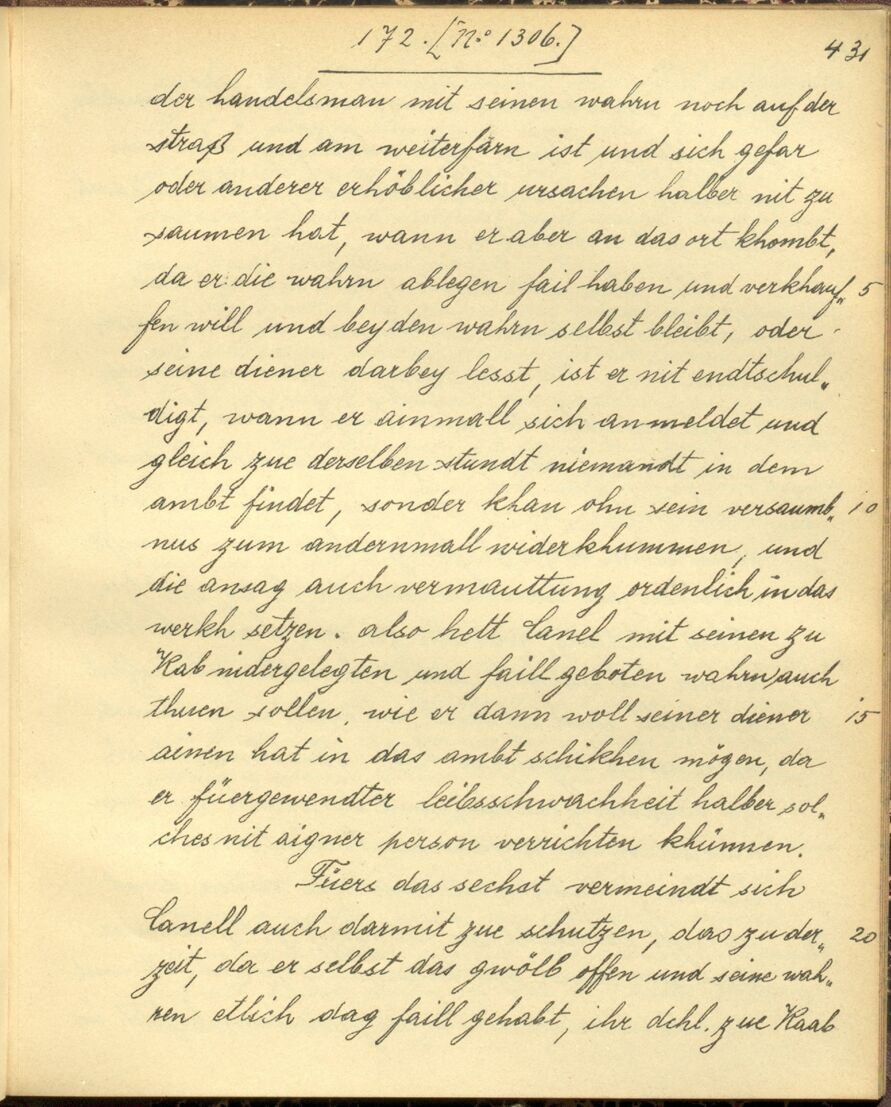 172. [No 1306.]
431
der handelsman mit seinen wahrn noch auf der
straß und am weiterfarn ist und sich gefar
oder anderer erhöblicher ursachen halber nit zu
saumen hat, wann er aber an das ort khombt,
da er die wahrn ablegen fail haben und verkhauf„ 5
fen will und bey den wahrn selbst bleibt, oder
seine diener darbey lesst, ist er nit endtschul„
digt, wann er ainmall sich anmeldet und
gleich zue derselben stundt niemandt in dem
ambt findet, sonder khan ohn sein versaumb„ 10
nus zum andernmall widerkhummen, und
die ansag auch vermauttung ordenlich in das
werkh setzen. also hett Canel mit seinen zu
Kab nidergelegten und faill geboten wahrn auch
thuen sollen, wie er dann woll seiner diener 15
ainen hat in das ambt schikhen mögen, da
er füergewendter leibsschwachheit halber sol„
ches nit aigner person verrichten khünnen.
Füers das sechst vermeindt sich
Canell auch darmit zue schutzen, das zu der„ 20
zeit, da er selbst das gwölb offen und seine wah„
ren etlich dag faill gehabt, ihr dchl. zue Kaab